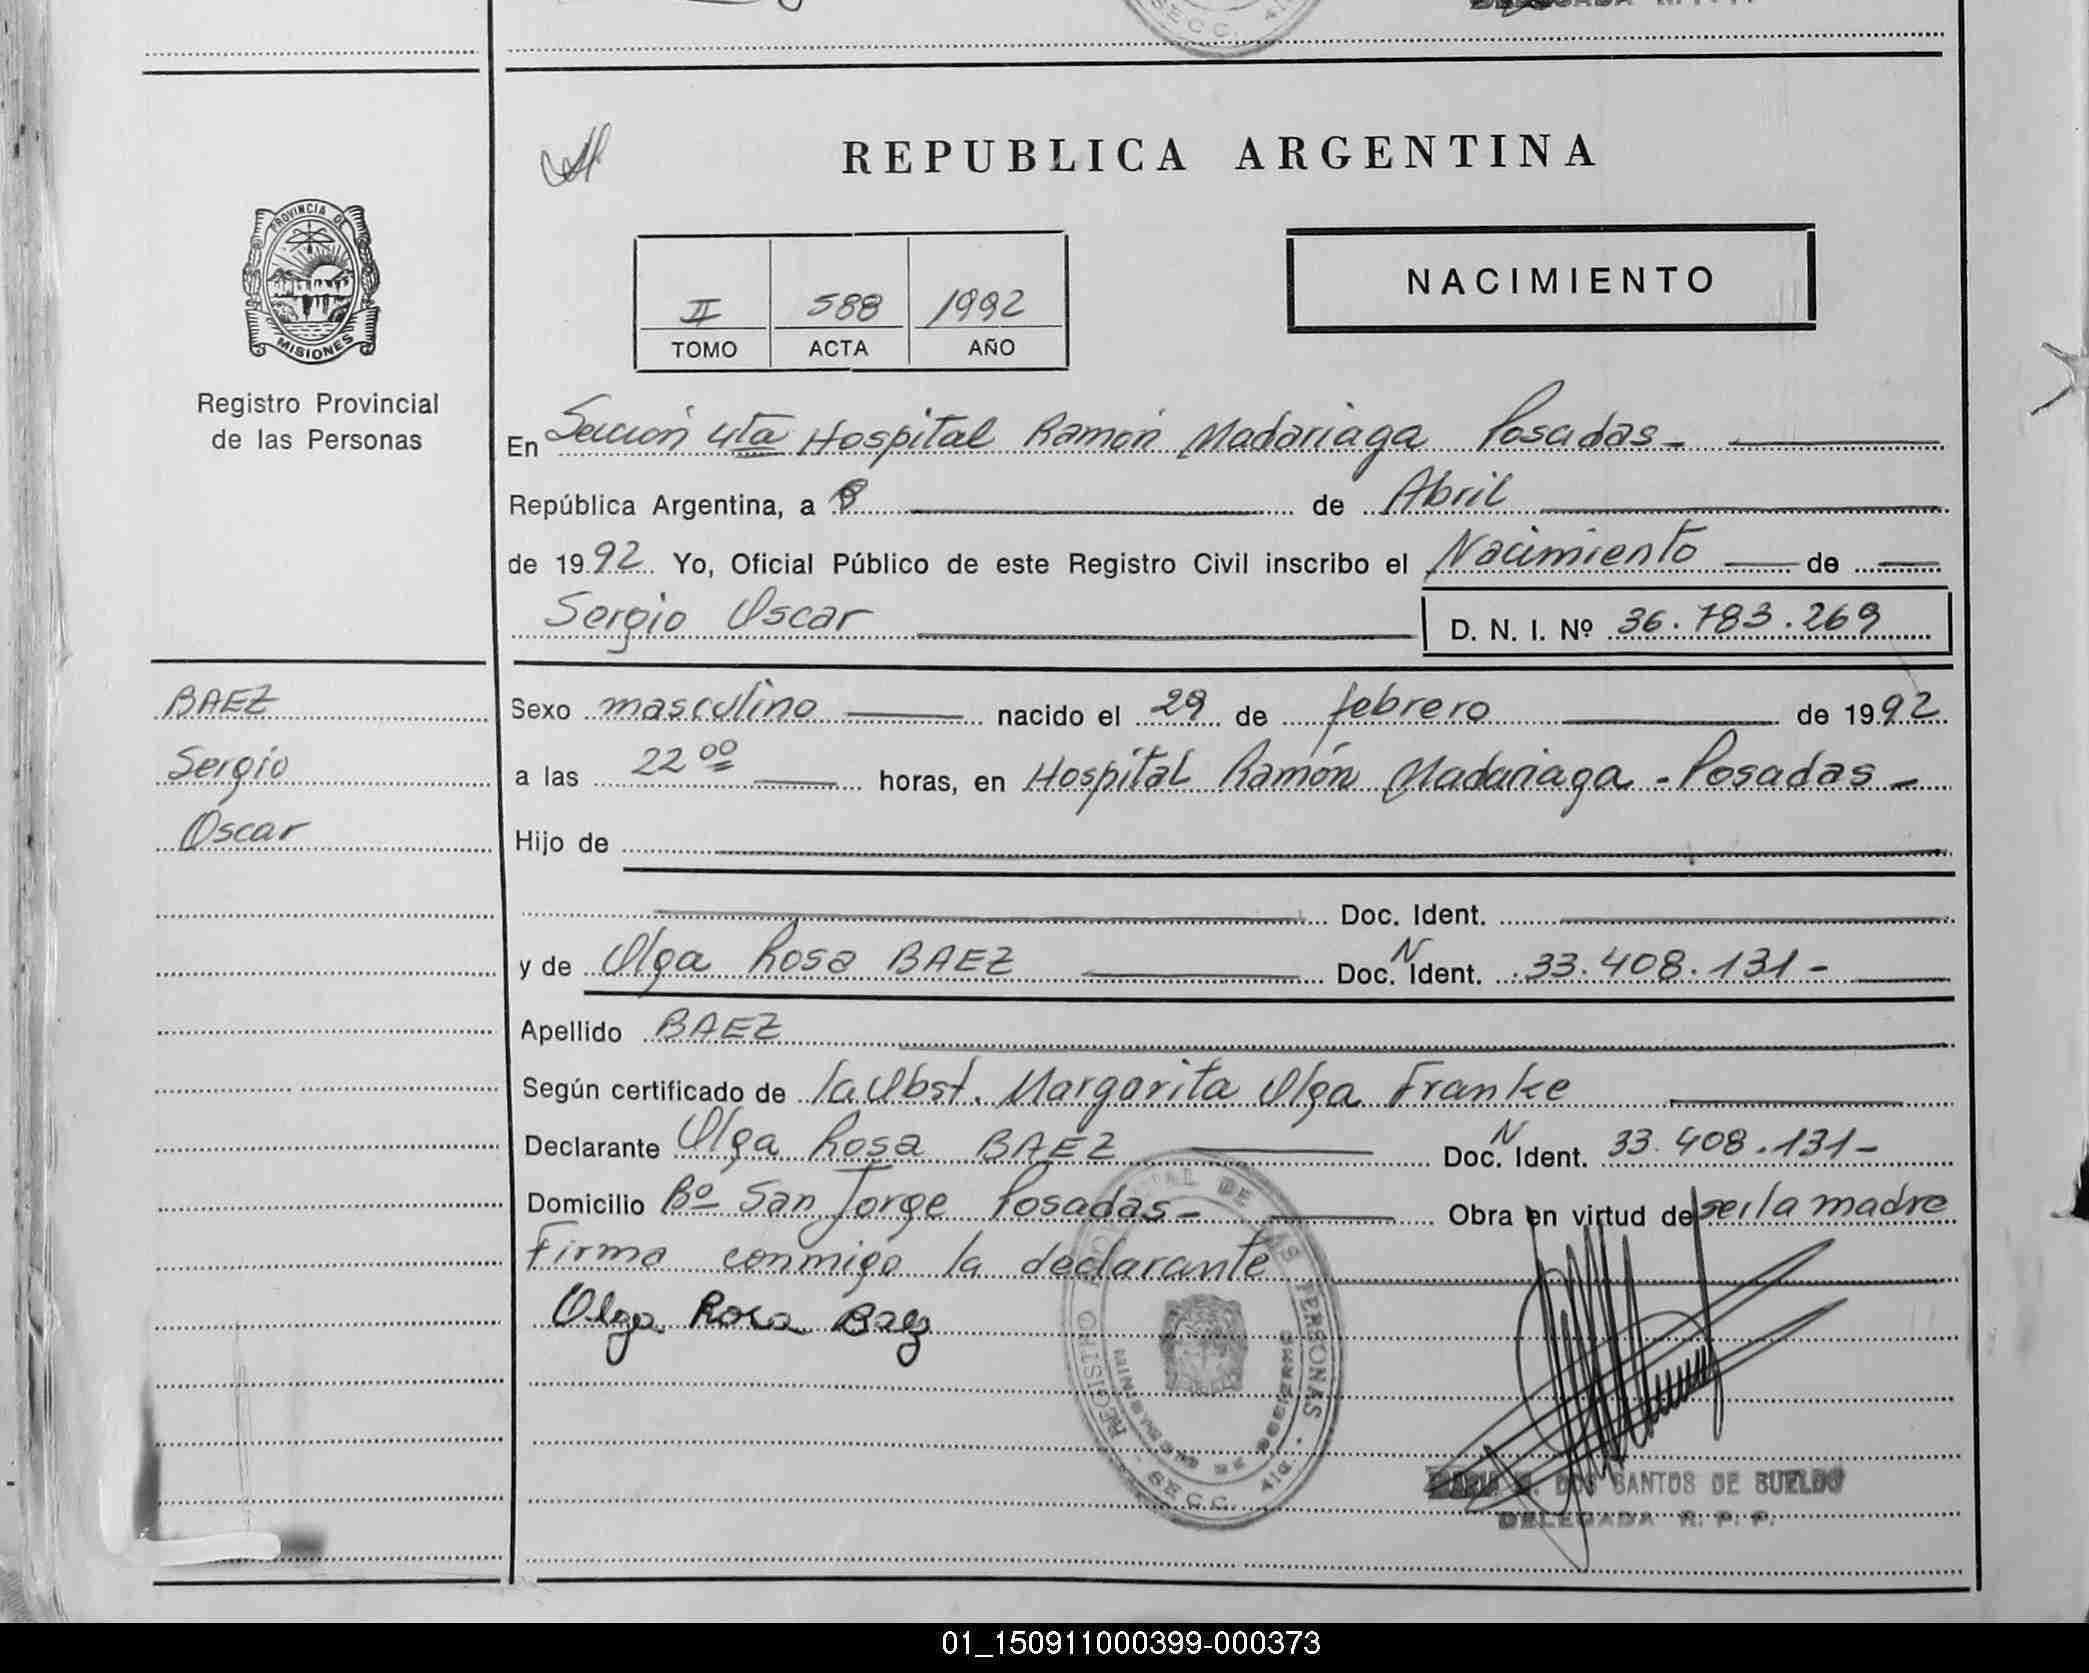 REPUBLICA ARGENTINA
PROVINCIA DE
MISIONES
Registro Provincial
de las Personas
II 588 1992
TOMO ACTA AÑO
NACIMIENTO
En Sección 4ta Hospital Ramón Madariaga Posadas-
República Argentina, a 8 de Abril
de 1992 Yo, Oficial Público de este Registro Civil inscribo el Nacimiento de
Sergio Oscar D. N. I. Nº 36.783.269
BAEZ
Sergio
Oscar
Sexo masculino nacido el 29 de febrero de 1992
a las 22 00 horas, en Hospital Ramón Madariaga - Posadas -
Hijo de
Doc. Ident.
y de Olga Rosa BAEZ Doc. N Ident. 33.408.131-
Apellido BAEZ
Según certificado de la Obst. Margarita Olga Franke
Declarante Olga Rosa BAEZ Doc. N Ident. 33.408.131-
Domicilio Bº San Jorge Posadas- Obra en virtud de ser la madre
Firma conmigo la declarante
Olga Rosa Baez
REGISTRO DE LAS PERSONAS
SECC. 4ta.
DOS SANTOS DE SUELDO
DELEGADA R. P. P.
01_150911000399-000373